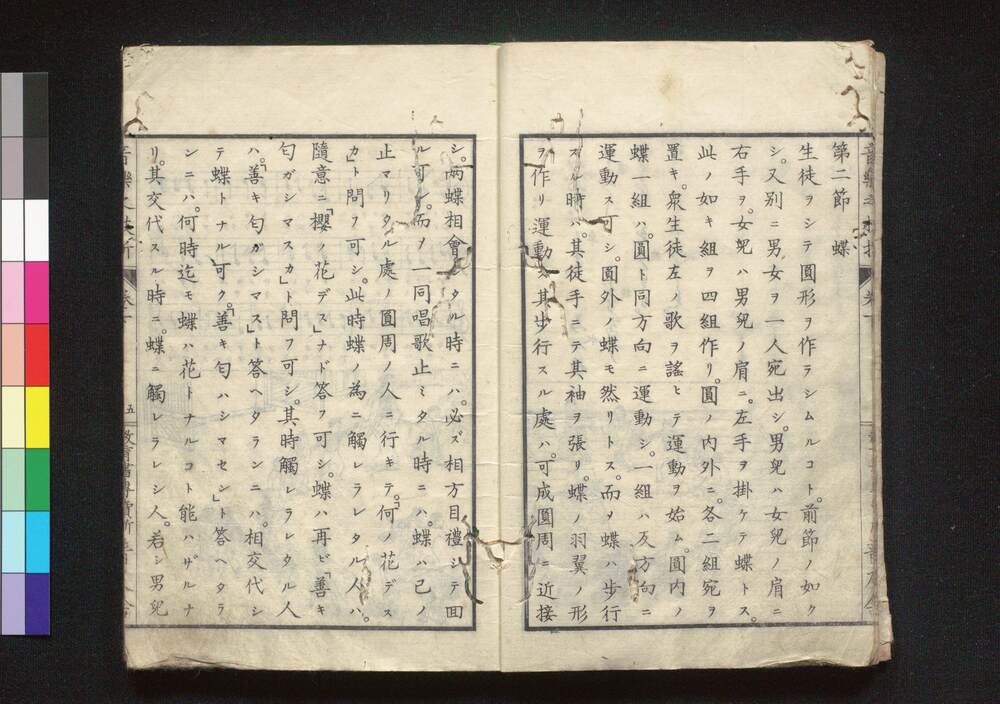 第二節　蝶
生徒ヲシテ圓形ヲ作ラシムルコト。前節ノ如ク
シ。又別ニ男女ヲ一人宛出シ。男兒ハ女兒ノ肩ニ
右手ヲ。女兒ハ男兒ノ肩ニ。左手ヲ掛ケテ蝶トス。
此ノ如キ組ヲ四組作リ。圓ノ内外ニ。各二組宛ヲ
置キ。衆生徒左ノ歌ヲ謠ヒテ運動ヲ始ム。圓内ノ
蝶一組ハ。圓ト同方向ニ運動シ。一組ハ反方向ニ
運動ス可シ。圓外ノ蝶モ然リトス。而ヲ蝶ハ歩行
スル時バ。其徒手ニテ其袖ヲ張リ。蝶ノ羽翼ノ形
ヲ作リ運動ス其歩行スル處ハ。可成圓周ニ近接
シ。兩蝶相會シタル時ニハ。必ズ相方目禮シテ回
ル可シ。而ヲ一同唱歌止ミタル時ニハ。蝶ハ已ノ
止マリタル處ノ圓周ノ人ニ行キテ。「何ノ花デス
カ」ト問フ可シ。此時蝶ノ為ニ觸レラレタル人ハ。
隨意ニ「櫻ノ花デス」ナド答フ可シ。蝶ハ再ビ「善キ
匂ガシマスカ」ト問フ可シ。其時觸レラレタル人
ハ。「善キ匂ガシマス」ト答ヘタランニハ。相交代シ
テ蝶トナル可ク。「善キ匂ハシマセン」ト答ヘタラ
ンニハ。何時迄モ蝶ハ花トナルコト能ハザルナ
リ。其交代スル時ニ。蝶ニ觸レラレシ人。若シ男兒
五